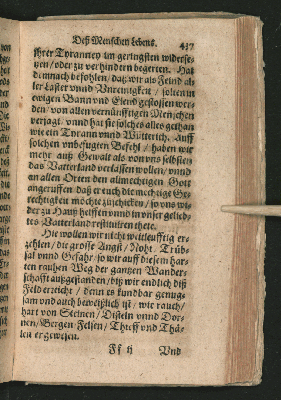 Deß Menschen Lebens. 437
ihrer Tyranney im geringsten widerse-
tzen/oder zu verhindern begerten. Hat
demnach befohlen/ daß wir als Feind al-
ler Laster vnnd Vneinigkeit / solten in
ewigen Bann vnd Elend gestossen wer-
den/von allen vernünfftigen Menschen
verjagt. vnnd hat sie solches alles gethan
wie ein Tyrann vnnd Wütterich. Auff
solchen vnbefugten Befehl / haben wir
mehr auß Gewalt als von vns selbsten
das Vatterland verlassen wollen/ vnnd
an allen Orten den allmechtigen Gott
angeruffen daß er euch die mechtige Ge-
rechtigkeit möchte zuschicken/ so vns wi-
der zu Hauß helffen vnnd in vnser gelieb-
tes Vatterland restituiren thete.
Hie wollen wir nicht weitleuffig er-
zehlen/ die grosse Angst/ Noht/ Trüb-
sal vnnd Gefahr/ so wir auff diesem har-
ten rauhen Weg der gantzen Wander-
schafft außgestanden/ biß wir endlich diß
Feld erreicht / denn es kundbar genug-
sam vnd auch beweißlich ist/ wie rauch/
hart von Steinen/ Disteln vnnd Dor-
nen/ Bergen Felsen/ Tieff vnd Thä-
len er gewesen.
Ff ij Vnd